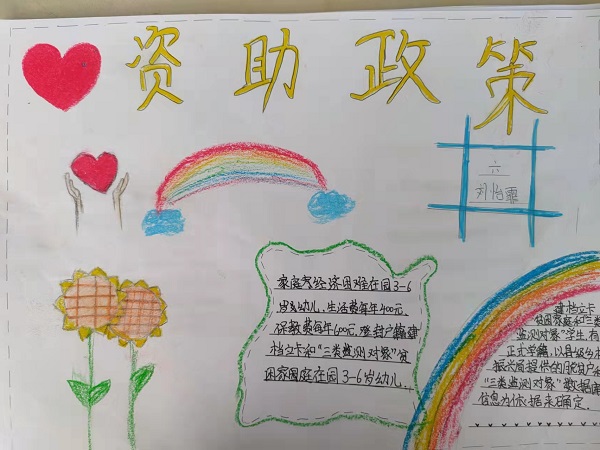 资助政策
六
刘怡霏
家庭经济困难在园3-6
岁幼儿,生活费每年400元.
保教费每年600元.建
档立卡和"三类监测对象"贫
困家庭在园3-6岁幼儿...
建档立卡
贫困家庭和三类
监测对象"学生,有
正式学籍,以县级乡村
振兴局提供的脱贫户和
"三类监测对象"数据库
信息为依据来确定.